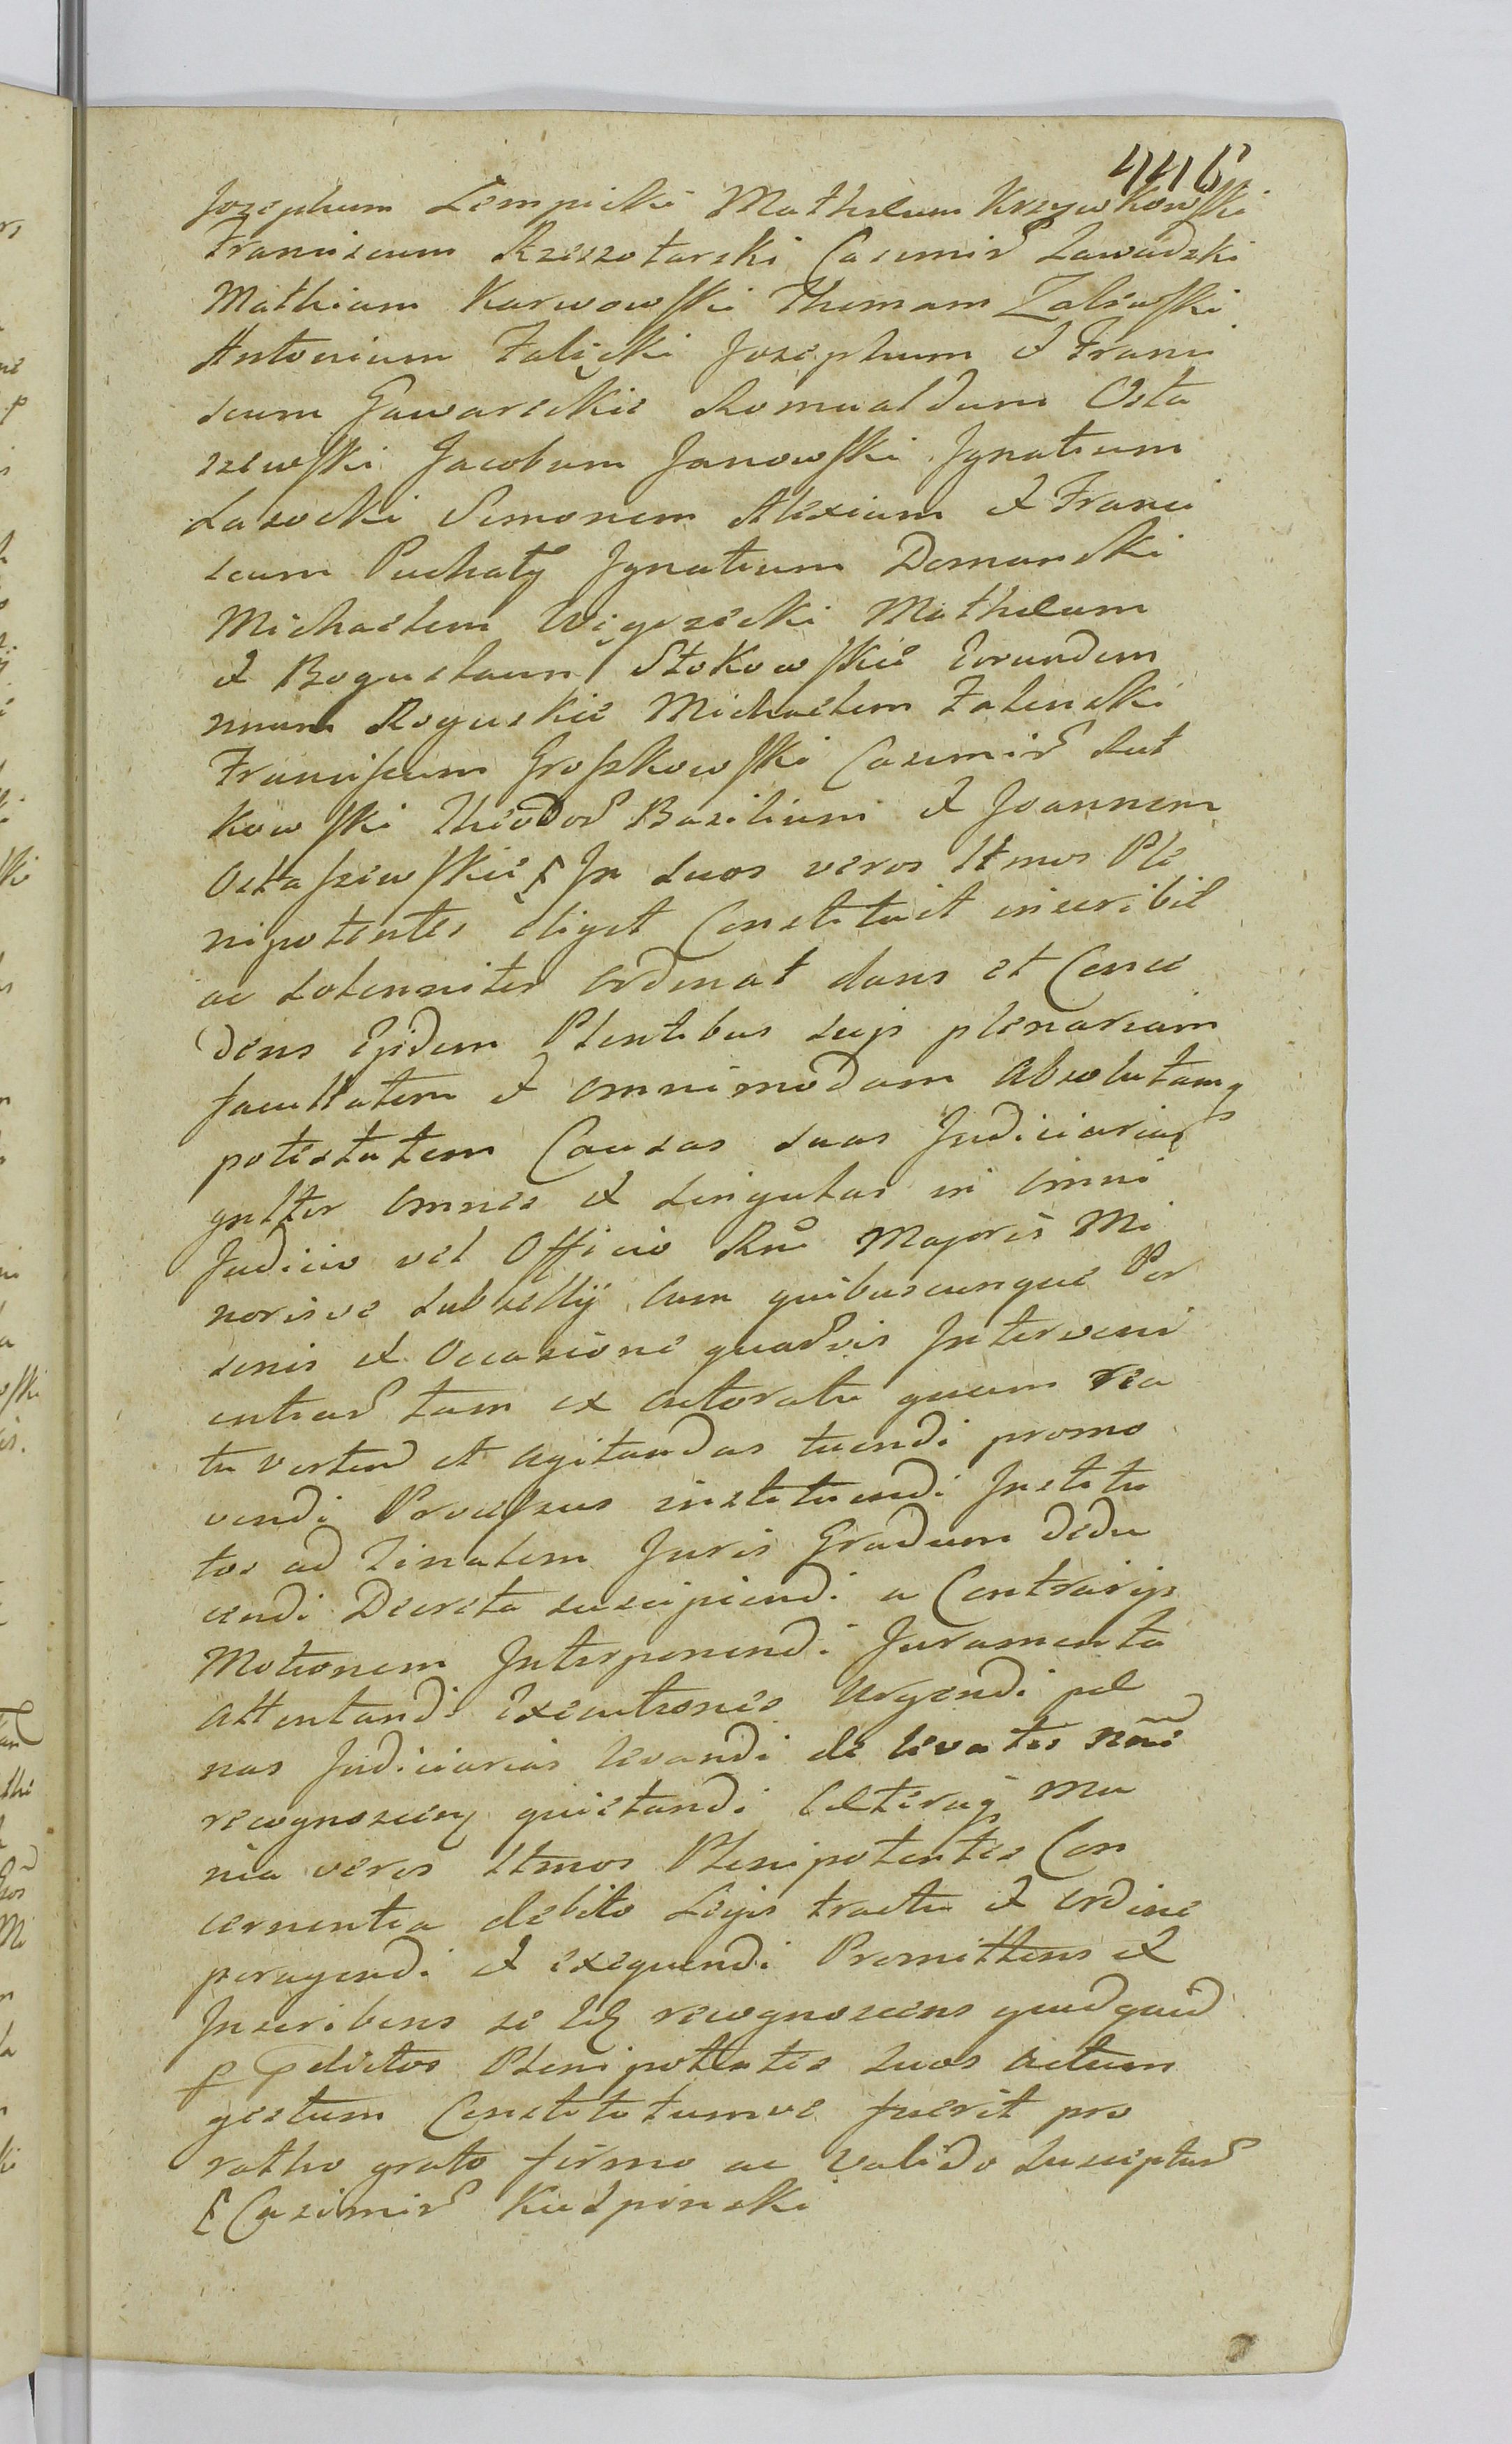 446
Josephum Lempicki Mathæum Krzywkowski
Franciscum Rzeszotarski Casimir Zawadzki
Mathiam Karwowski Thomam Zalewski
Antonium Zalęcki Josephum & Franci
scum Gawareckie Romualdum Osta
szewski Jacobum Janowski Ignatium
Lasocki Simonem Alexium & Franci
scum Puchały Ignatium Domanski
Michaelem Węgrzecki Mathæum
& Bogusłaum Stokowskie Eorundem
num Roguskie Michaelem Zalenski
Franciscum Groszkowski Casimir Rut
kowski Theodor Basilium & Joannem
Ostaszewskie In suos veros Ltmos Ple
nipotentes eligit Constituit inscribit
ac Solenniter Ordinat dans et Conce
dens Ejsdem Plentibus suis plenariam
facultatem & omnimodam Absolutamq
potestatem Causas suas Judiciarias
gnltter Omnes & singulas in Omni
Judicio vel Officio Rni Majoris Mi
norisve Subsellij Cum quibuscunque Per
sonis & Occasione quadvis Interveni
entiar tam ex Actoratu quam rea
tu vertend et Agitandas tuendi promo
vendi Processus instituendi Institu
tos ad Finalem Juris Gradum dedu
cendi Decreta suscipiendi a Contrarijs
Motionem Interponendi Juramenta
Attentandi Executiones Urgendi pœ
nas Judiciarias levandi de levatis
recognoscend quietandi Cæteraq Mu
nia veros Ltmos Plenipotentes Con
cernentia debito Legis tractu & ordine
peragendi & exequendi Promittens &
Inscribens se recognoscens quidquid
p pdictos Plenipotentes suos Actum
gestum Constitutumve fuerit pro
ratho grato firmo ac valido Suscipitur
Casimir Kudpinski